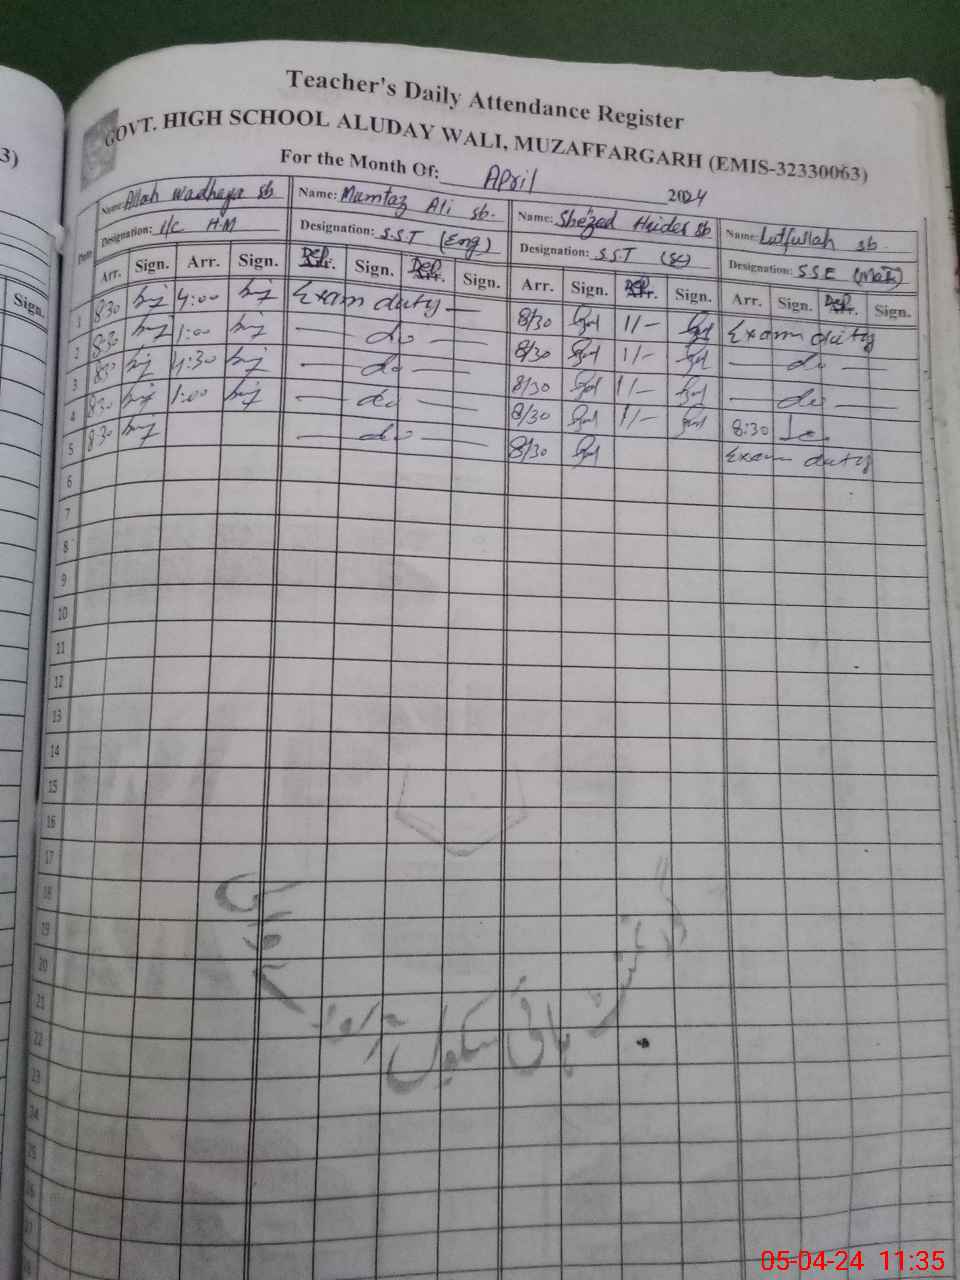 3)
Sign.
Teacher's Daily Attendance Register
GOVT. HIGH SCHOOL ALUDAY WALI, MUZAFFARGARH (EMIS-32330063)
For the Month Of: April 2024
Date
Name: Allah Wadhaya sb Name: Mumtaz Ali sb. Name: Shezad Haider sb Name: Lutfullah sb
Designation: I/C H.M Designation: S.S.T (Eng) Designation: S.S.T Designation: S S E
Arr. Sign. Arr. Sign. Dep. Sign. Dep. Sign. Arr. Sign. Dep. Sign. Arr. Sign. Dep. Sign.
1 8:30 4:00 Exam duty 8/30 1/- Exam duty
2 8:30 1:00 do 8/30 1/- do
3 8:30 4:30 do 8/30 1/- do
4 8:30 1:00 do 8/30 1/- 8:30
5 8:30 do 8/30 Exam duty
6
7
8
9
10
11
12
13
14
15
16
17
18
19
20
21
22
23
24
25
26
گورنمنٹ ہائی سکول
05-04-24 11:35